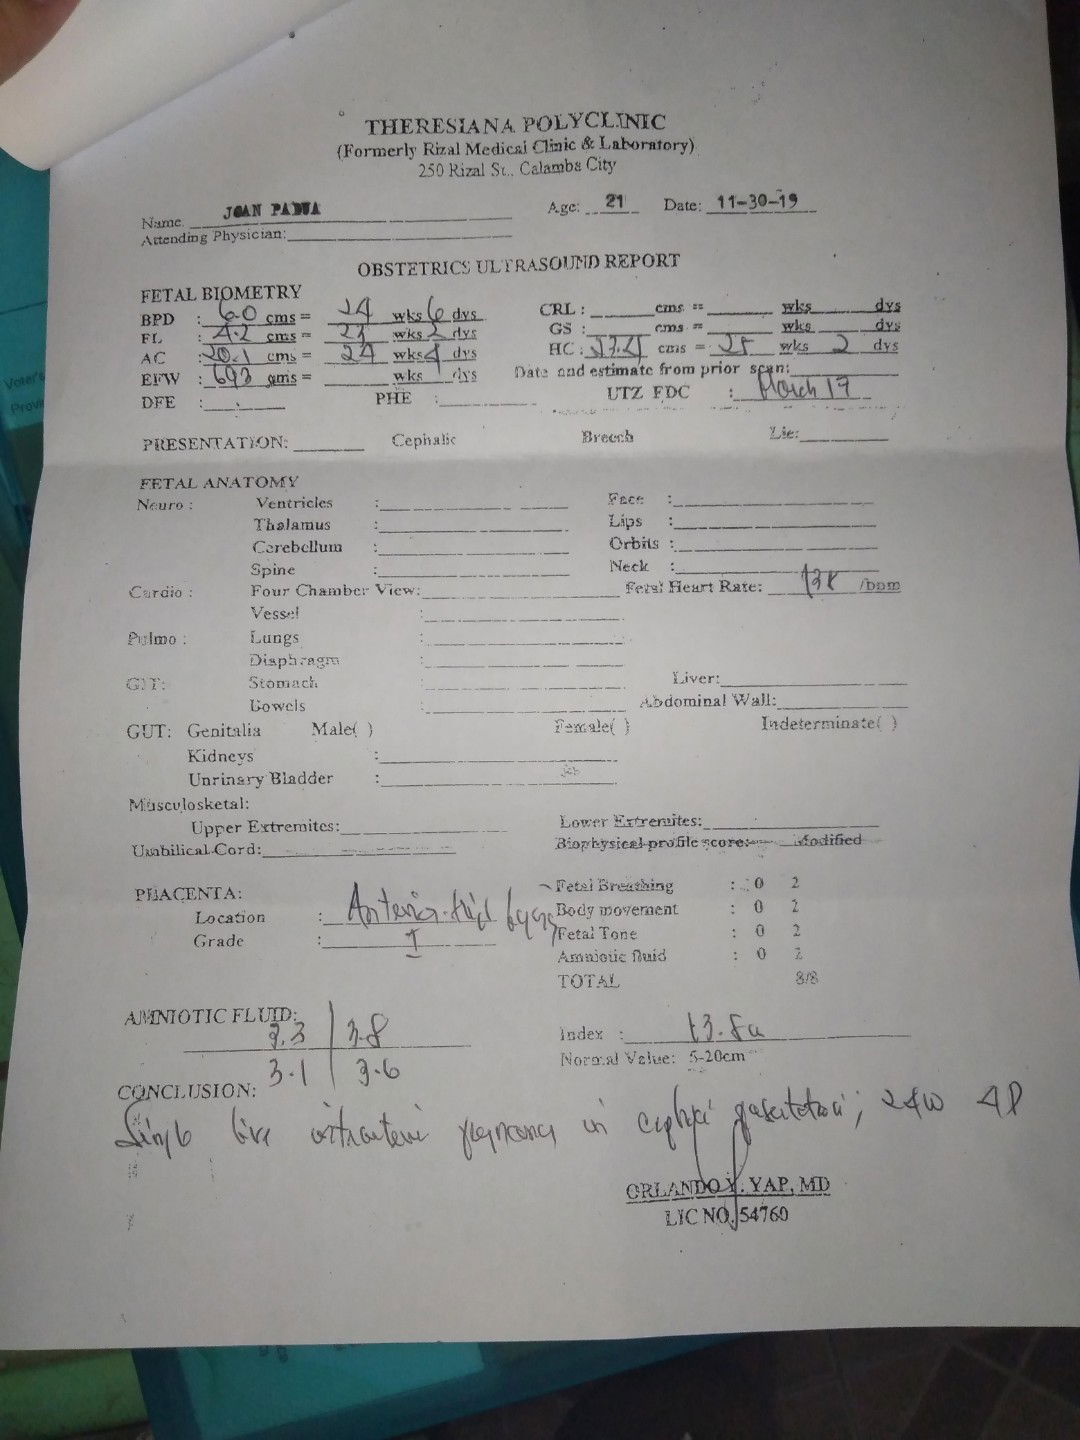 THERESIANA POLYCLINIC
(Formerly Rizal Medical Clinic & Laboratory)
250 Rizal St., Calamba City
Name. JOAN PADUA Age: 21 Date: 11-30-19
Attending Physician:
OBSTETRICS ULTRASOUND REPORT
FETAL BIOMETRY
BPD : 6.0 cms = 24 wks 6 dys CRL : cms = wks dys
FL : 4.2 cms = 23 wks 2 dys GS : cms = wks dys
AC : 20.1 cms = 24 wks 4 dys HC : cms = 25 wks 2 dys
EFW : 693 gms = wks dys Date and estimate from prior scan:
DFE : PHE : UTZ EDC : March 19
PRESENTATION: Cephalic Breech Lie:
FETAL ANATOMY
Neuro : Ventricles : Face :
Thalamus : Lips :
Cerebellum : Orbits :
Spine : Neck :
Cardio : Four Chamber View: Fetal Heart Rate: 138 /bpm
Vessel :
Pulmo : Lungs :
Diaphragm :
GIT: Stomach : Liver:
Bowels : Abdominal Wall:
GUT: Genitalia Male( ) Female( ) Indeterminate( )
Kidneys :
Unrinary Bladder :
Musculosketal:
Upper Extremites: Lower Extremites:
Umbilical Cord: Biophysical profile score: Modified
PLACENTA: Fetal Breathing : 0 2
Location : Anterior Body movement : 0 2
Grade : I Fetal Tone : 0 2
Amniotic fluid : 0 2
TOTAL 8/8
AMNIOTIC FLUID: 3.3 3.8 Index : 13.8
3.1 3.6 Normal Value: 5-20cm
CONCLUSION:
Single live intrauterine pregnancy in cephalic presentation; 24W 4D
ORLANDO Y. YAP, MD
LIC NO. 54760